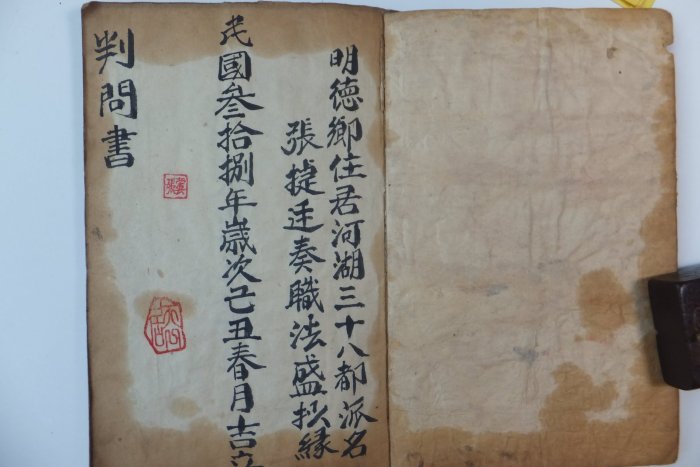 明德鄉住居河湖三十八都派名
張捷廷奏職法盛抄緣
民國叁拾捌年歲次己丑春月吉立
判問書